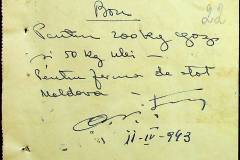 Bon
22
Pentru 200 kg
și 50 kg ulei —
Pentru ferma de stat
Moldova —
11-IV-943